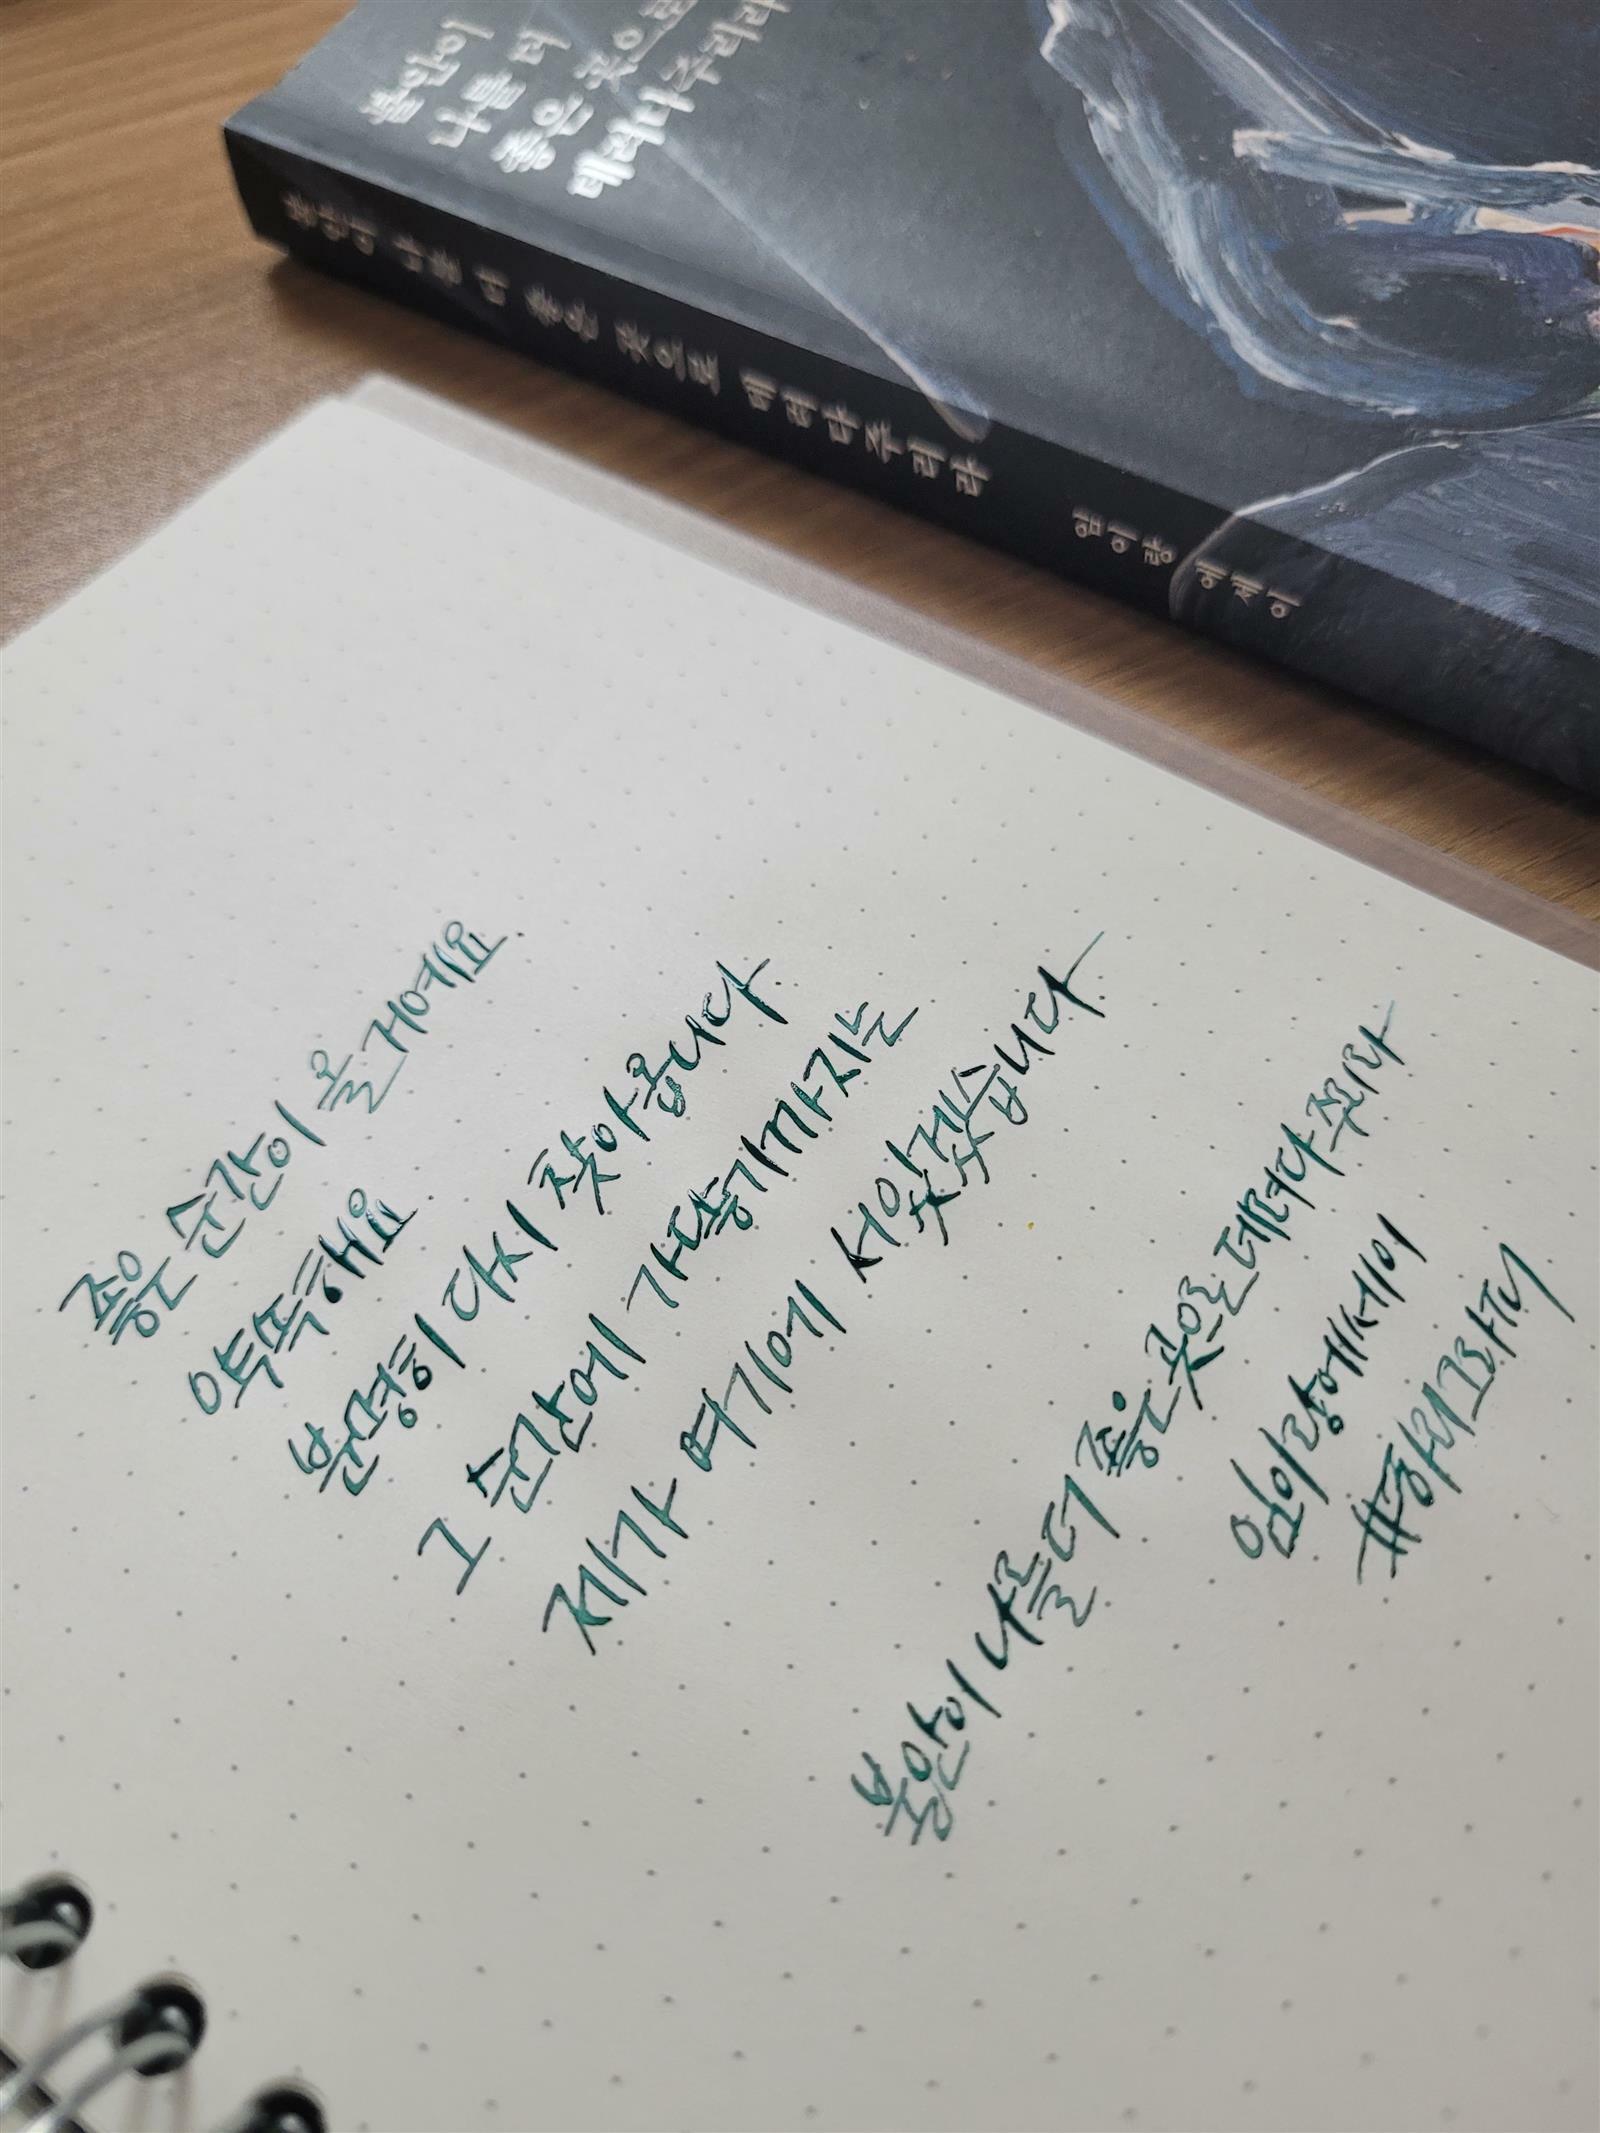 불안이
나를 더
좋은 곳으로
데려다주리라
불안이 나를 더 좋은 곳으로 데려다주리라 임이랑 에세이
좋은 순간이 올 거예요
약속해요
분명히 다시 찾아옵니다
그 순간에 가닿기까지는
제가 여기에 서있겠습니다
불안이 나를 더 좋은 곳으로 데려다 주리라
임이랑에세이